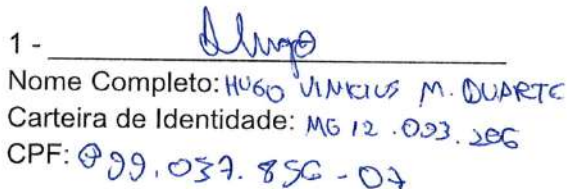 1 - Hugo
Nome Completo: HUGO VINICIUS M. DUARTE
Carteira de Identidade: MG 12.093.206
CPF: 099.037.856-07